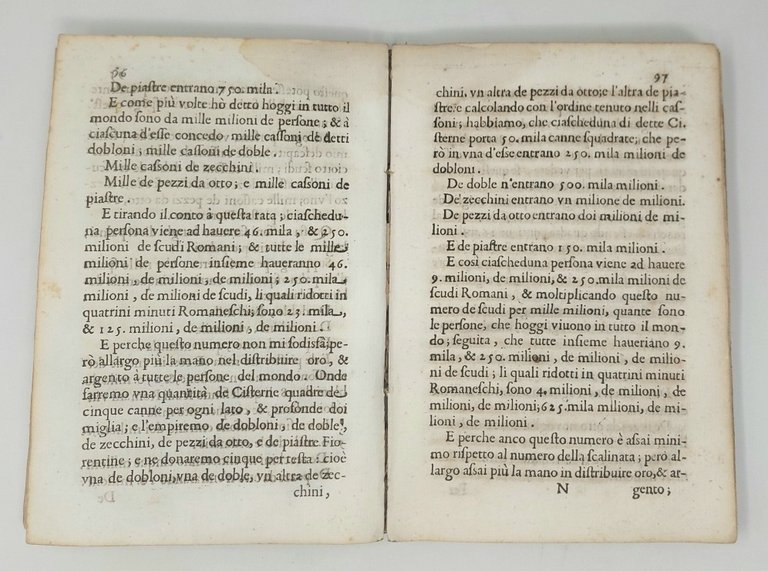 96
De piastre entrano 750. mila.
E come più volte hò detto hoggi in tutto il
mondo sono da mille milioni de persone; & à
ciascuna d'esse concedo mille cassoni de detti
dobloni; mille cassoni de doble.
Mille cassoni de zecchini.
Mille de pezzi da otto; e mille cassoni de
piastre.
E tirando il conto à questa rata; ciaschedu-
na persona viene ad hauere 46. mila, & 250.
milioni de scudi Romani; & tutte le mille
milioni de persone insieme haueranno 46.
milioni, de milioni, de milioni; 250. mila
milioni, de milioni de scudi, li quali ridotti in
quatrini minuti Romaneschi, sono 23. mila,
& 125. milioni, de milioni, de milioni.
E perche questo numero non mi sodisfa, pe-
rò allargo più la mano nel distribuire oro, &
argento à tutte le persone del mondo. Onde
farremo vna quantità de Cisterne quadre de
cinque canne per ogni lato, & profonde doi
miglia; e l'empiremo de dobloni, de doble,
de zecchini, de pezzi da otto, e de piastre Fio-
rentine; e ne donaremo cinque per testa: cioè
vna de dobloni, vna de doble, vn altra de zec-
chini,
97
chini, vn altra de pezzi da otto; e l'altra de pia-
stre: e calcolando con l'ordine tenuto nelli cas-
soni; habbiamo, che ciascheduna di dette Ci-
sterne porta 50. mila canne squadrate; che pe-
rò in vna d'esse entrano 250. mila milioni de
dobloni.
De doble n'entrano 500. mila milioni.
De zecchini entrano vn milione de milioni.
De pezzi da otto entrano doi milioni de mi-
lioni.
E de piastre entrano 150. mila milioni.
E così ciascheduna persona viene ad hauere
9. milioni, de milioni, & 250. mila milioni de
scudi Romani, & moltiplicando questo nu-
mero de scudi per mille milioni, quante sono
le persone, che hoggi viuono in tutto il mon-
do; seguita, che tutte insieme haueriano 9.
mila, & 250. milioni, de milioni, de milio-
ni de scudi; li quali ridotti in quatrini minuti
Romaneschi, sono 4. milioni, de milioni, de
milioni, de milioni; 625. mila milioni, de mi-
lioni, de milioni.
E perche anco questo numero è assai mini-
mo rispetto al numero della scalinata; però al-
largo assai più la mano in distribuire oro, & ar-
N gento;